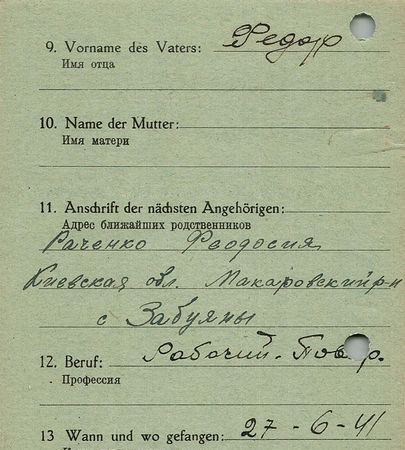 9. Vorname des Vaters: Федор
Имя отца
10. Name der Mutter:
Имя матери
11. Anschrift der nächsten Angehörigen:
Адрес ближайших родственников
Раченко Феодосия
Киевская обл. Макаровский р-н
с Забуяны
12. Beruf: Рабочий.
Профессия
13 Wann und wo gefangen: 27-6-41